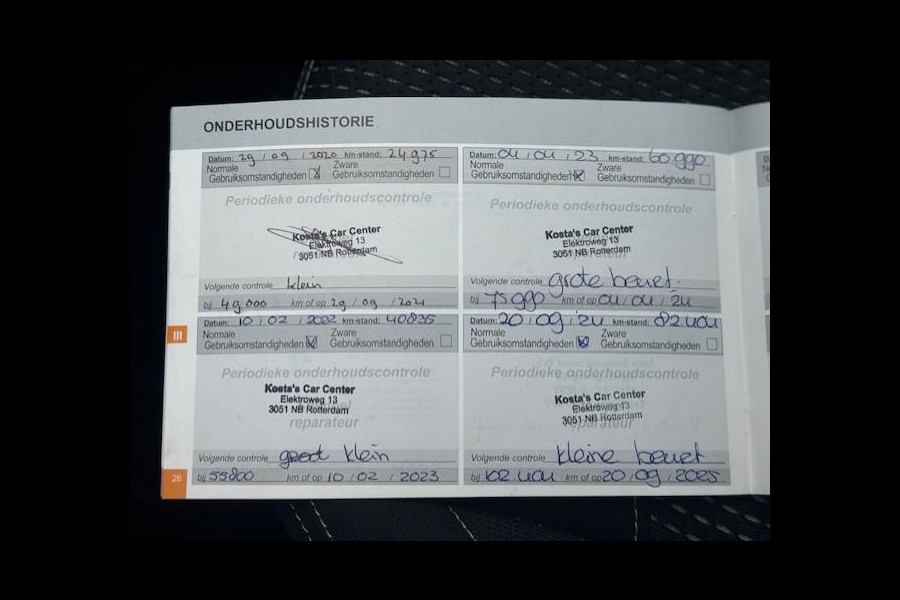 ONDERHOUDSHISTORIE
Datum: 29 / 09 / 2020 km-stand: 24975
Normale Gebruiksomstandigheden Zware Gebruiksomstandigheden
Periodieke onderhoudscontrole
Kosta's Car Center
Elektroweg 13
3051 NB Rotterdam
Volgende controle klein
bij 49000 km of op 29 / 09 / 2021
Datum: 04 / 04 / 23 km-stand: 60990
Normale Gebruiksomstandigheden Zware Gebruiksomstandigheden
Periodieke onderhoudscontrole
Kosta's Car Center
Elektroweg 13
3051 NB Rotterdam
Volgende controle grote beurt.
bij 75990 km of op 04 / 04 / 24
III
Datum: 10 / 02 / 2022 km-stand: 40835
Normale Gebruiksomstandigheden Zware Gebruiksomstandigheden
Periodieke onderhoudscontrole
Kosta's Car Center
Elektroweg 13
3051 NB Rotterdam
reparateur
Volgende controle klein
bij 55800 km of op 10 / 02 / 2023
Datum: 20 / 09 / 24 km-stand: 82401
Normale Gebruiksomstandigheden Zware Gebruiksomstandigheden
Periodieke onderhoudscontrole
Kosta's Car Center
Elektroweg 13
3051 NB Rotterdam
reparateur
Volgende controle kleine beurt
bij 102401 km of op 20 / 09 / 2025
26